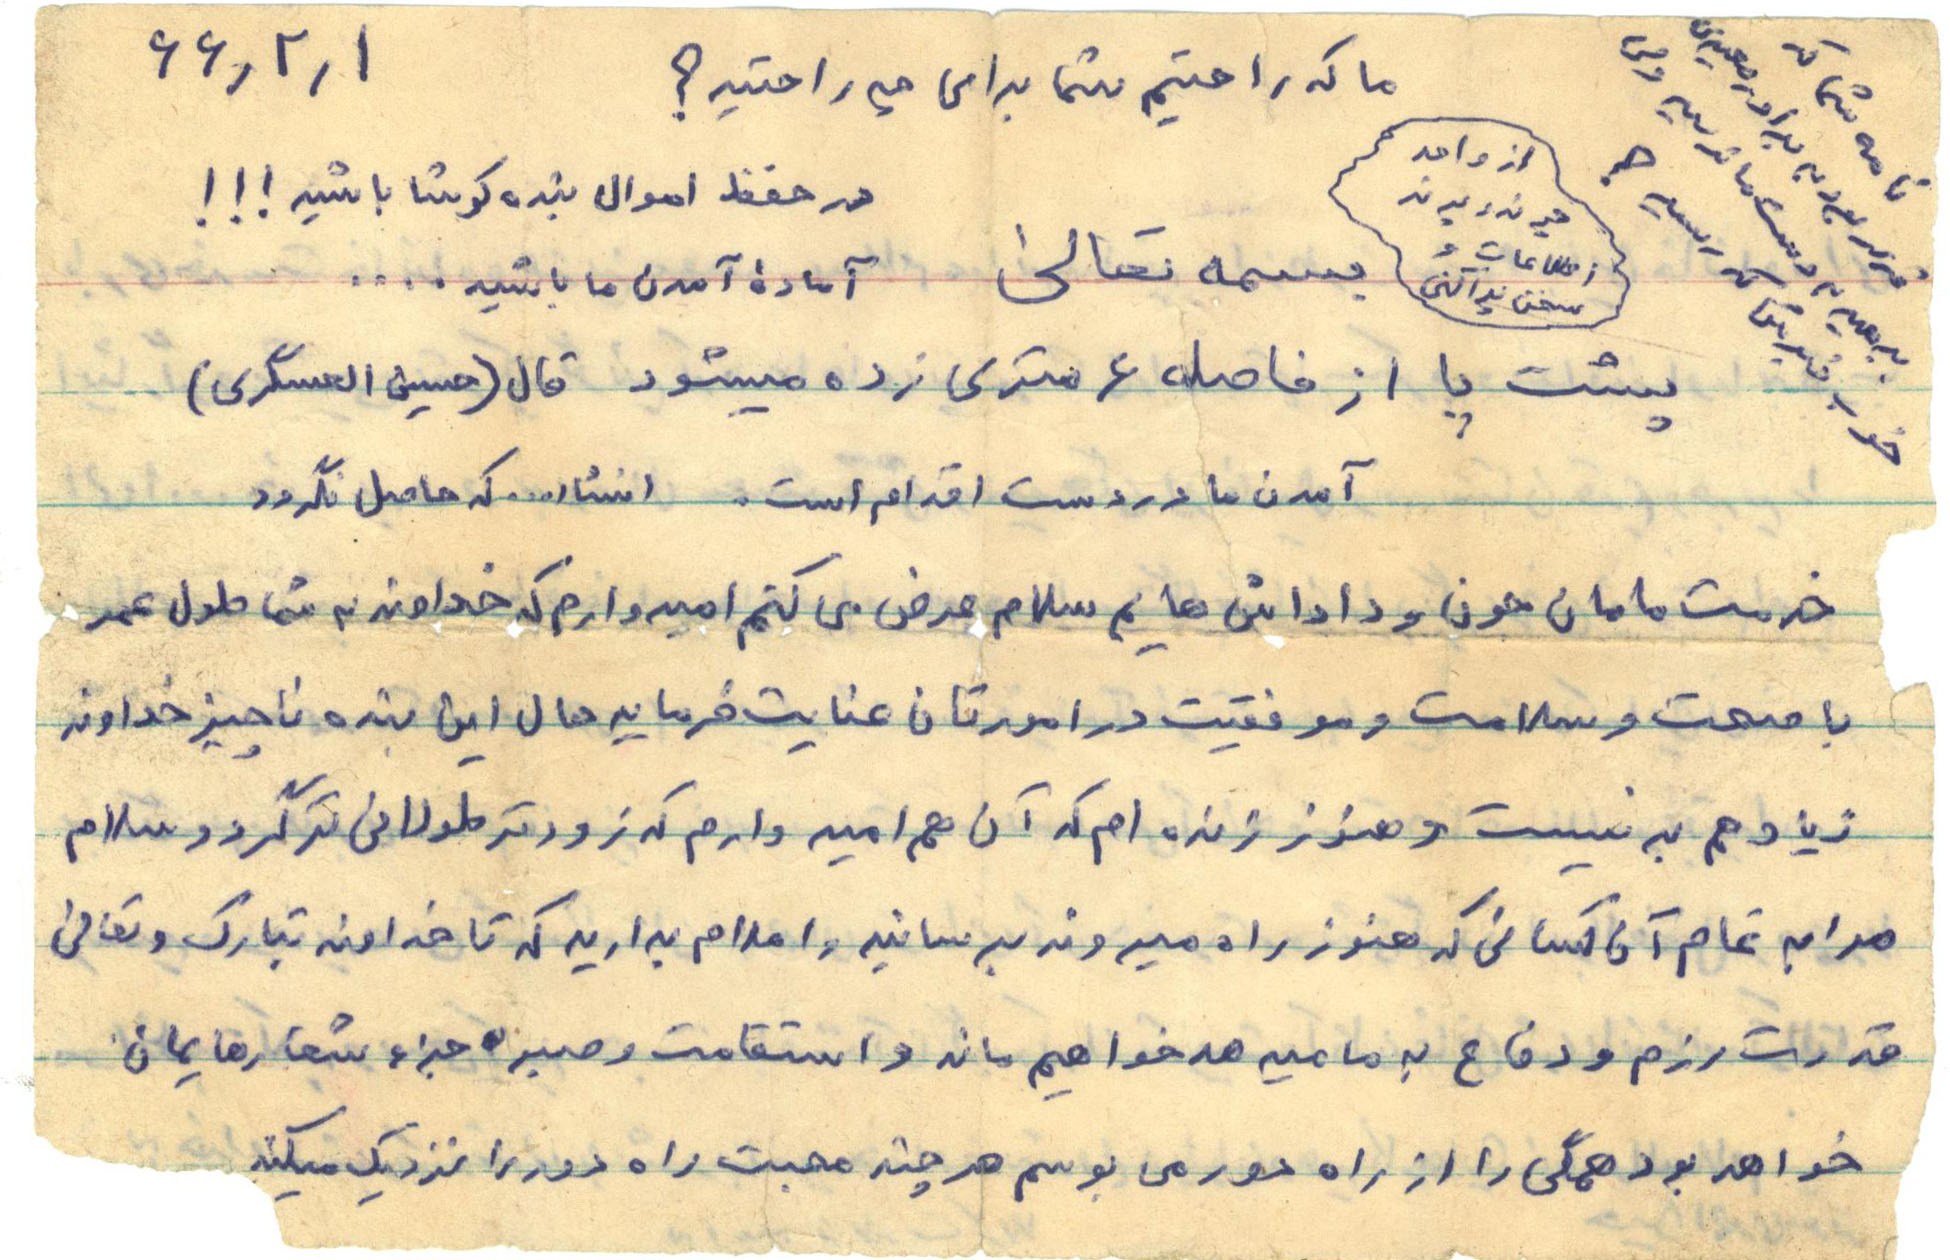 ۶۶٫۲٫۱
ما که راحتیم شما برای چه راحتید؟
در حفظ اموال بنده کوشا باشید!!!
بسمه تعالی
آمادهٔ آمدن ما باشید....
از واحد
چرند و پرند
اطلاعات و
سخن پراکنی
نامه شما که
خود را
پشت پا از فاصله ۶ متری زده میشود قال (حسین العسگری)
آمدن ما در دست اقدام است. انشاا... که حاصل نگردد
خدمت مامان جون و داداش هایم سلام عرض می کنم امیدوارم که خداوند به شما طول عمر
با صحت و سلامت و موفقیت در امورتان عنایت فرماید حال این بنده ناچیز خداوند
زیاد هم بد نیست و هنوز زنده ام که آن هم امید وارم که زودتر طولانی تر نگردد سلام
مرا به تمام آن کسانی که هنوز راه میروند برسانید و اعلام بدارید که تا خداوند تبارک و تعالی
قدرت رزم و دفاع به ما میدهد خواهیم ماند و استقامت و صبر جزء شعارهایمان
خواهد بود همگی را از راه دور می بوسم هر چند محبت راه دور را نزدیک میکند